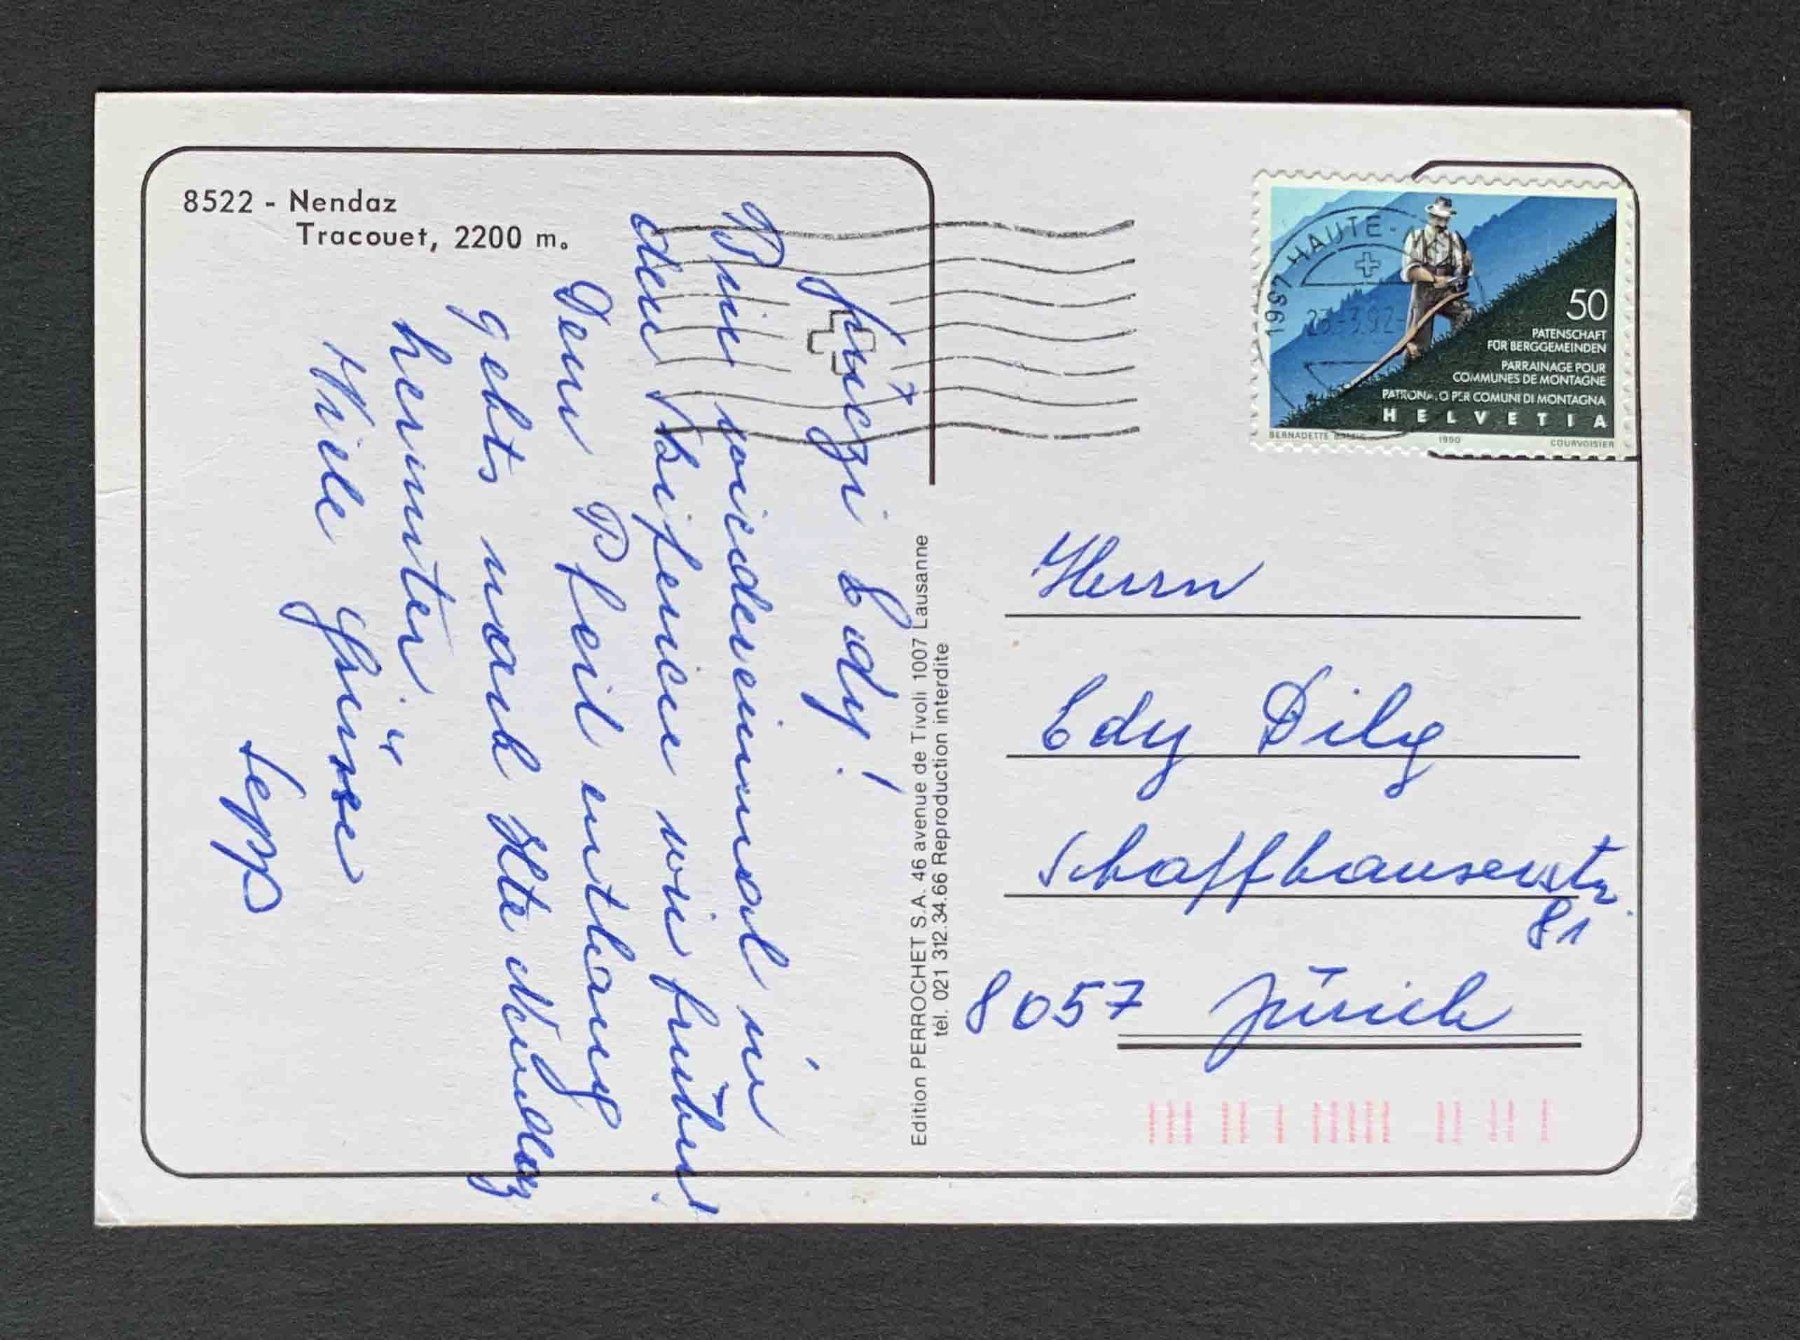 8522 - Nendaz
Tracouet, 2200 m.
Grüezi Edy!
Bin wiedereinmal in
den Skiferien wie früher!
Dem Pfeil entlang
gehts nach Hte Nendaz
herunter.
Viele Grüsse
Sepp
Edition PERROCHET S.A. 46 avenue de Tivoli 1007 Lausanne
tél. 021 312.34.66 Reproduction interdite
1997 HAUTE-
23.-3.92-
50
PATENSCHAFT
FÜR BERGGEMEINDEN
PARRAINAGE POUR
COMMUNES DE MONTAGNE
PATRONATO PER COMUNI DI MONTAGNA
HELVETIA
BERNADETTE
1990
COURVOISIER
Herrn
Edy Dilg
Schaffhauserstr.
81
8057 Zürich